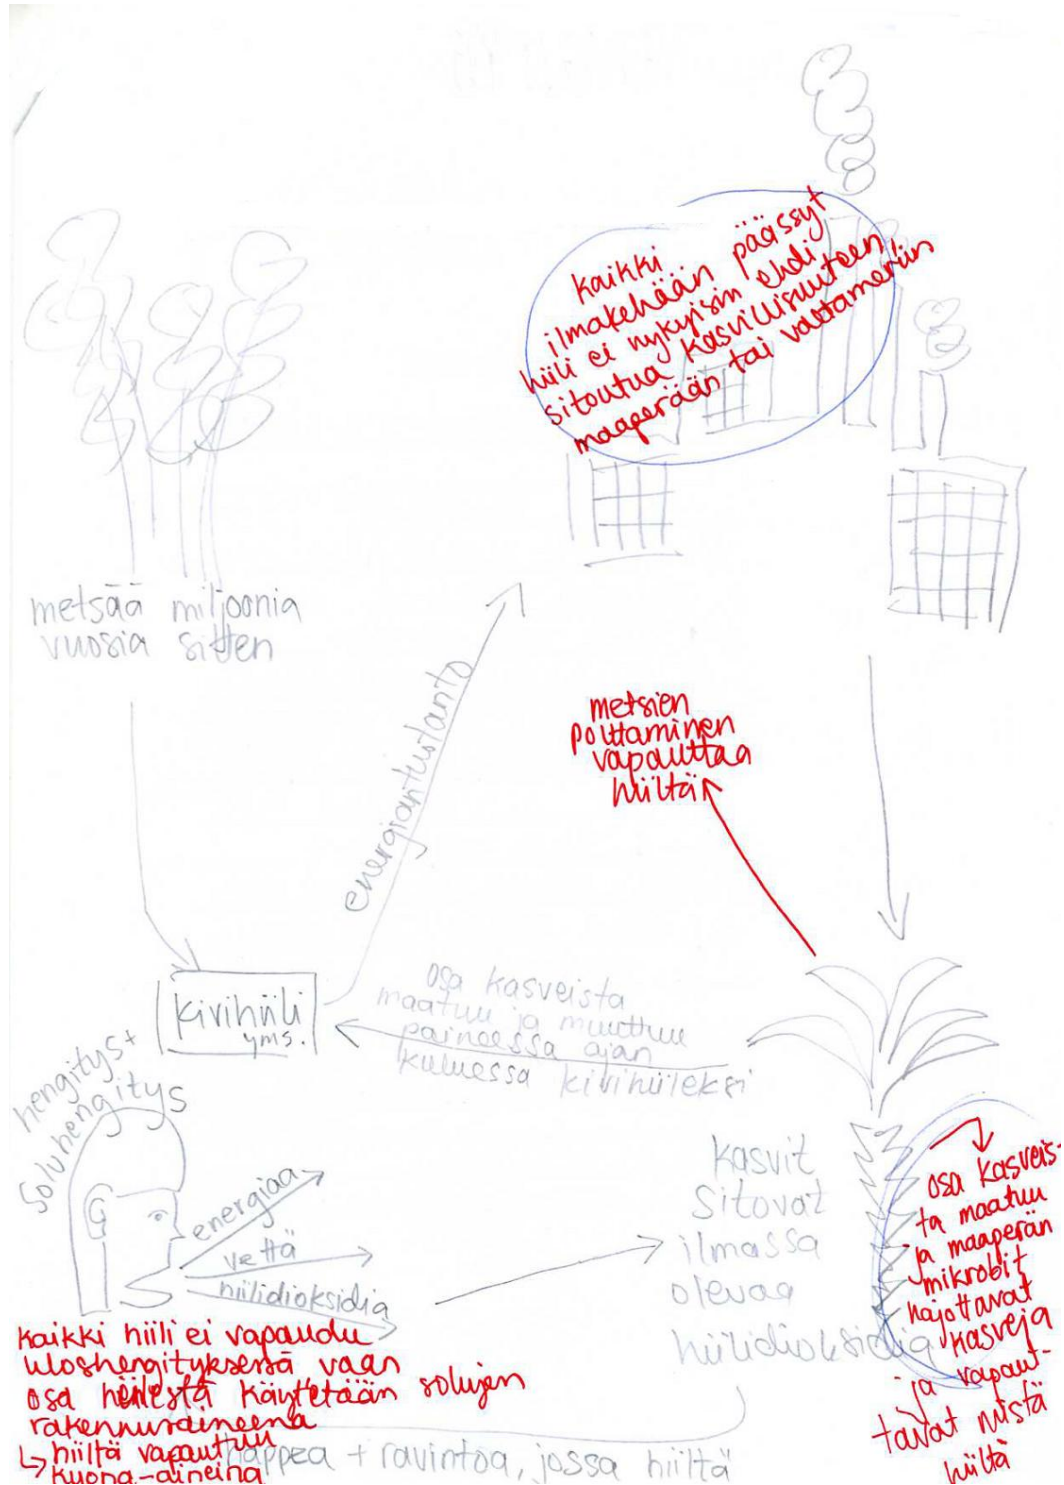 kaikki
ilmakehään päässyt
hiili ei nykyisin ehdi
sitoutua kasvillisuuteen,
maaperään tai valtameriin
metsää miljoonia
vuosia sitten
energiantuotanto
metsien
polttaminen
vapauttaa
hiiltä
kivihiili
yms.
osa kasveista
maatuu ja muuttuu
paineessa ajan
kuluessa kivihiileksi
hengitys+
soluhengitys
energiaa
vettä
hiilidioksidia
kasvit
sitovat
ilmassa
olevaa
hiilidioksidia
osa kasveis-
ta maatuu
ja maaperän
mikrobit
hajottavat
kasveja
ja vapaut-
tavat niistä
hiiltä
kaikki hiili ei vapaudu
uloshengityksessä vaan
osa hiilestä käytetään solujen
rakennusaineena
↳ hiiltä vapautuu
kuona-aineina
happea + ravintoa, jossa hiiltä